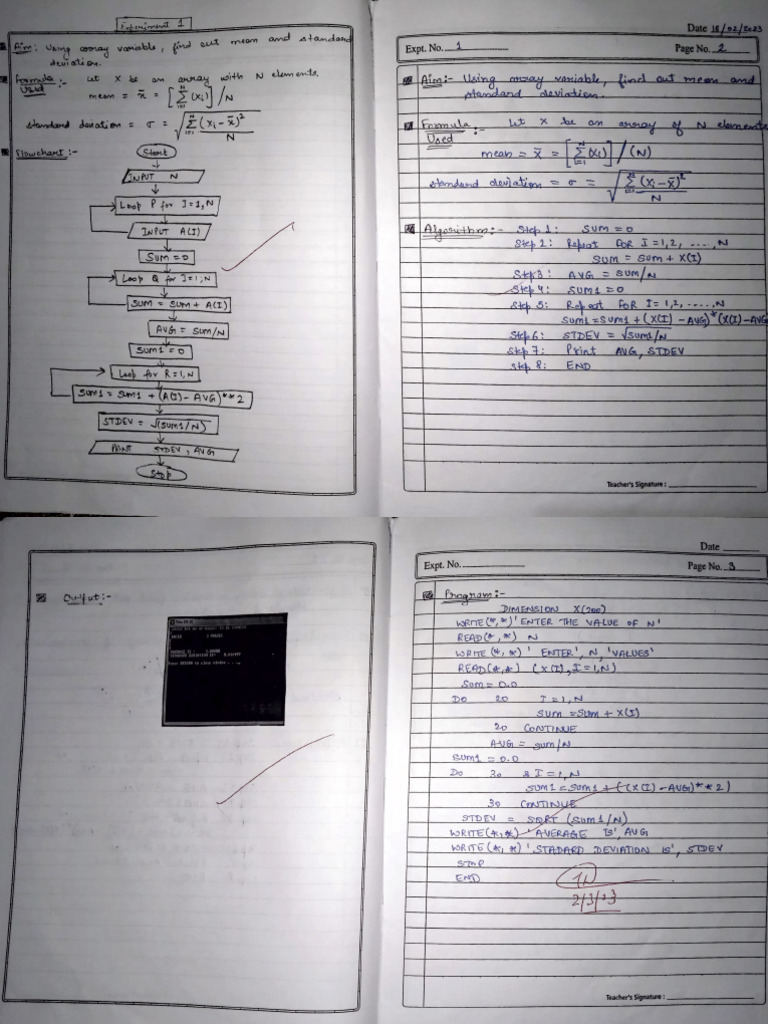 Experiment 1
Aim:- Using array variable, find out mean and standard
deviation.
Formula Used :- Let X be an array with N elements.
mean = x̄ = [∑ᵢ₌₁ᴺ (xᵢ)] / N
standard daviation = σ = √(∑ᵢ₌₁ᴺ (xᵢ - x̄)² / N)
Flowchart :-
Start
INPUT N
Loop P for I=1,N
INPUT A(I)
SUM=0
Loop Q for I=1,N
SUM = SUM + A(I)
AVG = SUM/N
SUM1=0
Loop for R=1,N
SUM1 = SUM1 + (A(I) - AVG)**2
STDEV = √(SUM1/N)
PRINT STDEV, AVG
Stop
Date 18/02/2023
Expt. No. 1
Page No. 2
Aim:- Using array variable, find out mean and
standard deviation.
Formula Used :- Let X be an array of N elements
mean = x̄ = [∑ᵢ₌₁ᴺ (xᵢ)] / (N)
standard deviation = σ = √(∑ᵢ₌₁ᴺ (xᵢ - x̄)² / N)
Algorithm:- Step 1: SUM = 0
Step 2: Repeat FOR I = 1,2, ...., N
SUM = SUM + X(I)
Step 3: AVG = SUM/N
Step 4: SUM1 = 0
Step 5: Repeat FOR I = 1,2, ....., N
SUM1 = SUM1 + (X(I) - AVG)*(X(I) - AVG
Step 6: STDEV = √SUM1/N
Step 7: Print AVG, STDEV
Step 8: END
Teacher's Signature :
Output:-
Date
Expt. No.
Page No. 3
Program:-
DIMENSION X(200)
WRITE(*,*)'ENTER THE VALUE OF N'
READ(*,*) N
WRITE(*,*) 'ENTER', N, 'VALUES'
READ(*,*) (X(I), I=1,N)
SUM = 0.0
DO 20 I=1,N
SUM = SUM + X(I)
20 CONTINUE
AVG = sum/N
SUM1 = 0.0
DO 30 I=1,N
SUM1 = SUM1 + ((X(I) - AVG)**2)
30 CONTINUE
STDEV = SQRT (SUM1/N)
WRITE(*,*) 'AVERAGE IS', AVG
WRITE(*,*) 'STADARD DEVIATION IS', STDEV
STOP
END
2/3/23
Teacher's Signature :